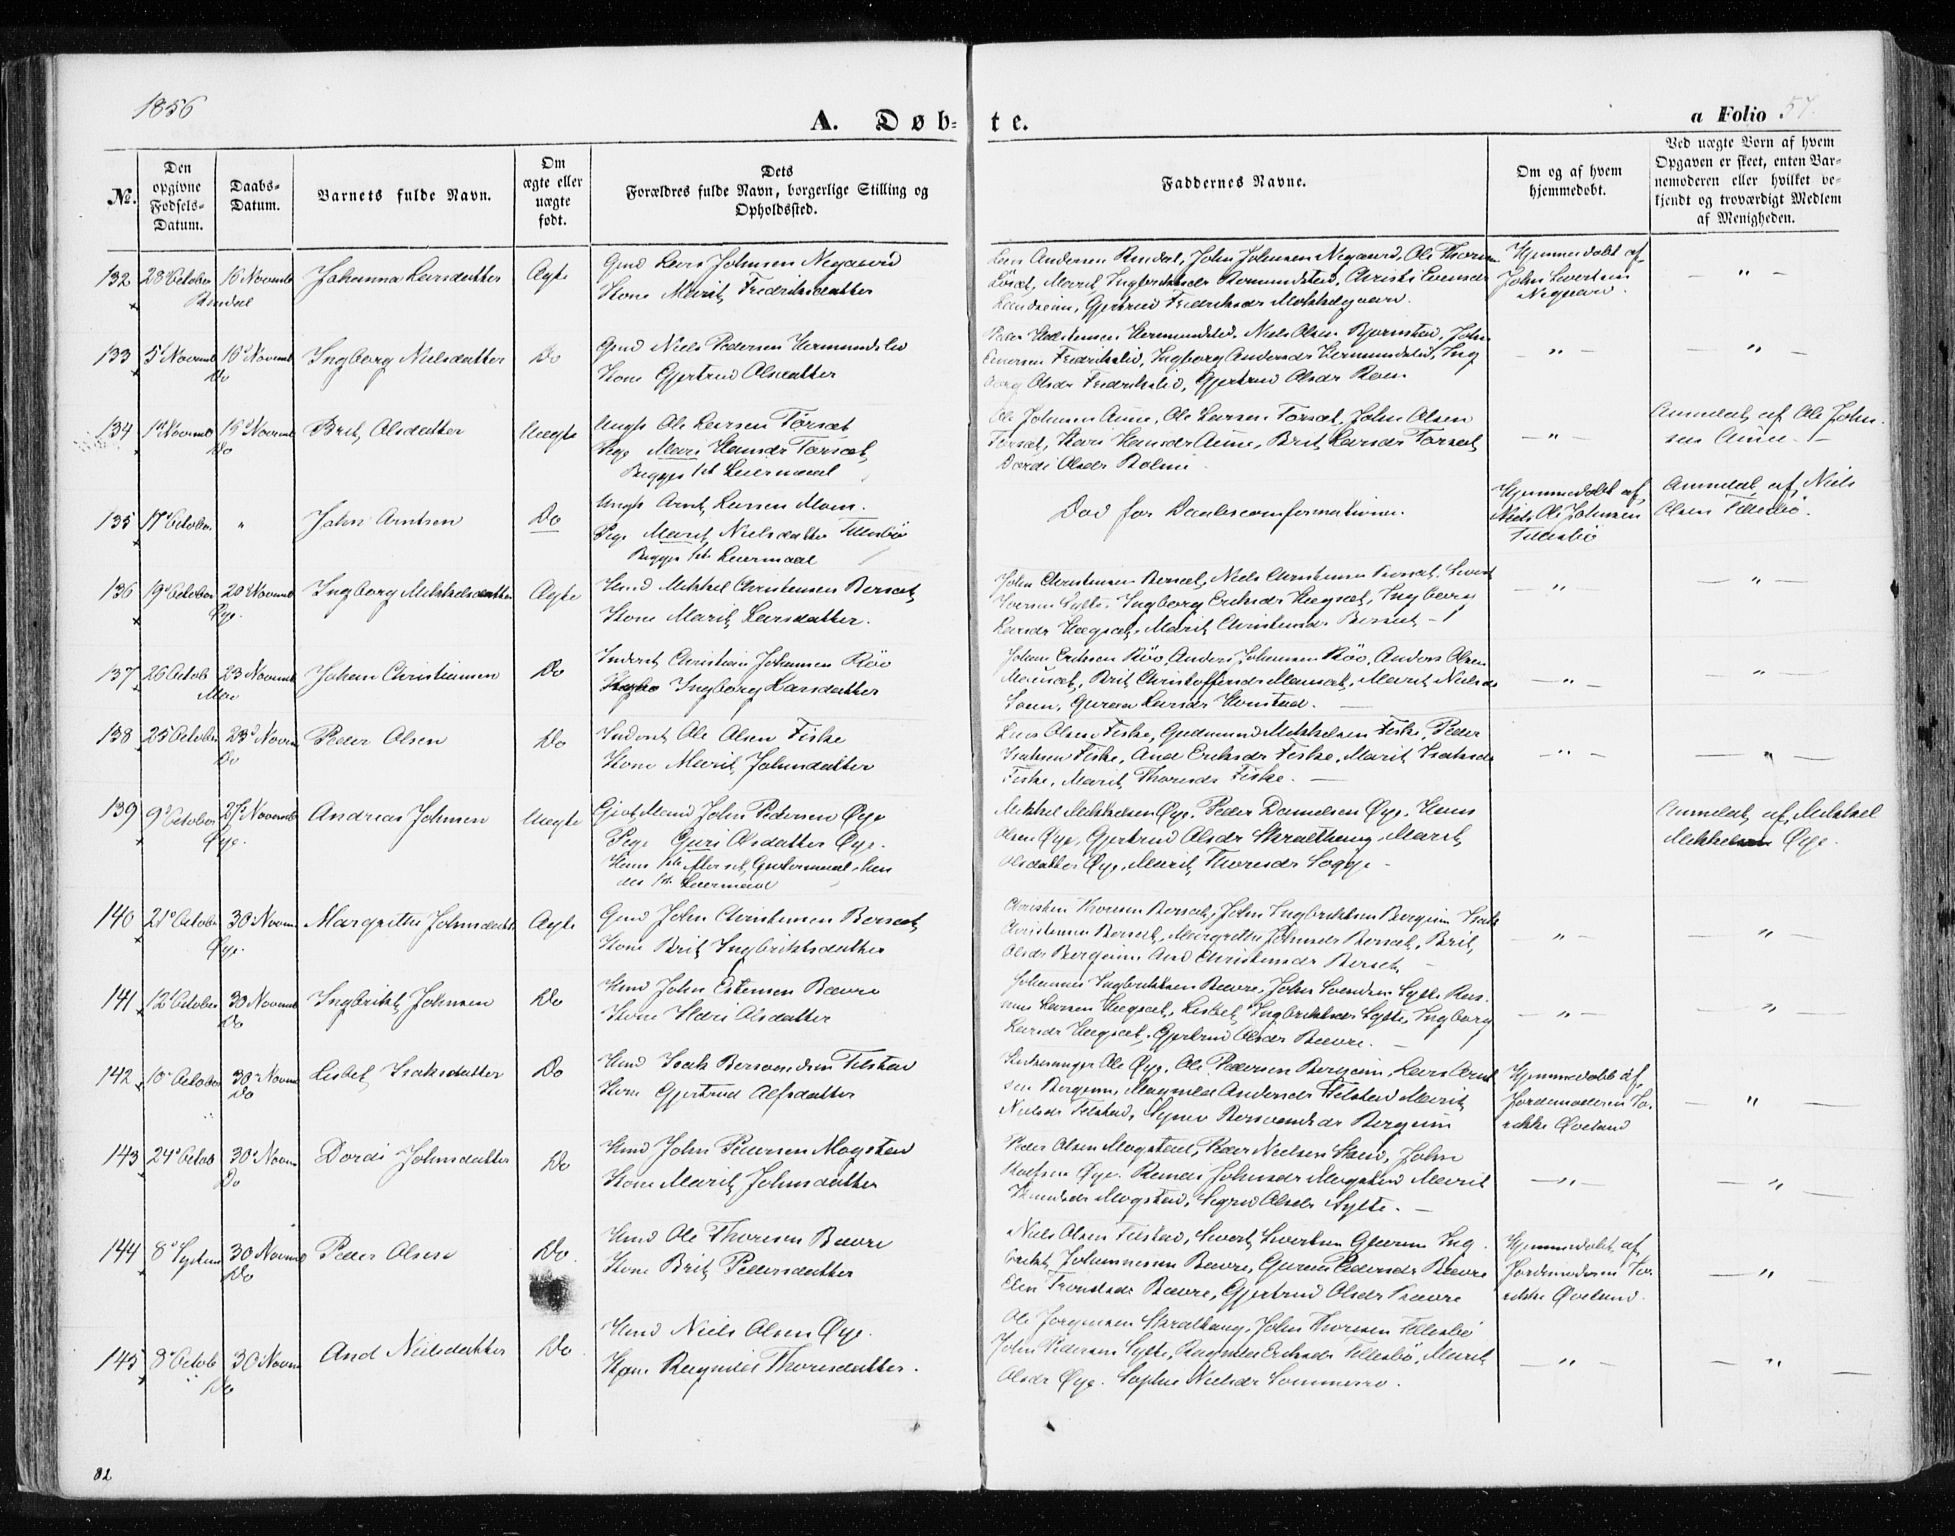 1856
A. Døb-
te.
a Folio 57.
No.
Den opgivne Fødsels-Datum.
Daabs-Datum.
Barnets fulde Navn.
Om ægte eller uægte født.
Dets Forældres fulde Navn, borgerlige Stilling og Opholdssted.
Faddernes Navne.
Om og af hvem hjemmedøbt.
Ved uægte Børn af hvem Opgaven er skeet, enten Barnemoderen eller hvilket bekjendt og troværdigt Medlem af Menigheden.
132 28 October 16 Novemb Johanna Larsdatter Ægte Gmd Lars Johnsen Negaard
Rindal Kone Marit Fredriksdatter
Lars Andersen Rindal, John Johnsen Negaard, Ole Thoresen
Løset, Marit Ingbriktsdr Romundstad, Christi Evensdr
Landseim, Gjertrud Fredriksdr Mokkelgaard.
Hjemmedøbt af
John Sivertsen
Negaard.
133 5 Novemb 16 Novemb Ingborg Nielsdatter Do Gmd Niels Pedersen Hermundslid
Do Kone Gjertrud Olsdatter
Hermundslid, Niels Olsen Bjørnstad, John
Fredrikslid, Ingborg Andersdr Hermundslid, Ing
borg Olsdr Fredrikslid, Gjertrud Olsdr Roen
134 1 Novemb 16 Novemb Brit Olsdatter Uægte Ungk Ole Larsen Torset
Do Pige Mari Hansdr Torset,
Begges 1ste Leiermaal
Ole Johnsen Aune, Ole Larsen Torset, John Olsen
Torset, Kari Hansdr Aune, Brit Larsdr Torset
Dordi Olsdr Bolme.
Anmeldt af Ole John-
sen Aune.
135 17 October " John Arntsen Do Ungk Arnt Larsen Moen.
Pige Marit Nielsdatter Tellesbø
Begges 1ste Leiermaal
Død før Daabsconfirmationen.
Hjemmedøbt af
Niels Ole Johnsen
Tellesbø
Anmeldt af Niels
Olsen Tellesbø.
136 19 October 20 Novemb Ingborg Mikkelsdatter Ægte Hmd Mikkel Christensen Bersæt,
Øye. Kone Marit Larsdatter.
John Christensen Bersæt, Niels Christensen Bersæt, Sivert
Sylte, Ingborg Eriksdr Hægsæt, Ingborg
Larsdr Hægsæt, Marit Christensdr Bersæt
137 26 Octob 23 Novemb Johan Christiansen Do Inderst Christian Johansen Røv
Moe Ingborg Larsdatter
Johan Eriksen Røv, Anders Johansen Røv, Anders Olsen
Mauset, Brit Christoffersdr Mauset, Marit Nielsdr
Guren Larsdr Honstad.
138 25 October 23 Novem Peder Olsen Do Inderst Ole Olsen Fiske
Do Kone Marit Johnsdatter
Lars Olsen Fiske, Gudmund Mikkelsen Fiske, Peder
Isaksen Fiske, And Eriksdr Fiske, Marit Isaksdr
Fiske, Marit Thoresdr Fiske.
139 9 October 27 Novemb Andreas Johnsen Uægte Gift Mand John Pedersen Øye
Øye. Pige Guri Olsdatter Øye.
Mikkel Mikkelsen Øye, Peder Danielsen Øye, Hans
Olsen Øye, Gjertrud Olsdr Skralthaug, Marit
Olsdatter Øye, Marit Thoresdr Sogge.
Anmeldt af Mikkel
Mikkelsen Øye.
140 21 October 30 Novem Margrethe Johnsdatter Ægte Gmd John Christensen Bersæt
Øye. Kone Brit Ingbriktsdatter
Christen Thoresen Bersæt, John Ingbriktsen Bergeim, Isak
Christensen Bersæt, Margrethe Johnsdr Bersæt, Brit
Olsdr Bergeim, And Christensdr Bersæt,
141 12 October 30 Novemb Ingbrikt Johnsen Do Hmd John Estensen Bævre
Do Kone Kari Olsdatter
Johannes Ingbriktsen Bævre, John Sylte, Ras-
mus Larsen Hægsæt, Lisbet Ingbriktsdr Sylte, Ingborg
Larsdr Hægsæt, Gjertrud Olsdr Bævre.
142 10 October 30 Novem Lisbet Isaksdatter Do Hmd Isak Tilstad
Do Kone Gjertrud Alfsdatter
Kirkesanger Ole Øye, Ole Pedersen Bergeim, Lars Arnt
sen Bergeim, Magnild Andersdr Tilstad, Marit
Nielsdr Tilstad, Bergeim
Hjemmedøbt af
Jordemoderen
Øvelund
143 24 Octob 30 Novem Dordi Johnsdatter Do Hmd John Pedersen Mogstad
Do Kone Marit Johnsdatter
Peder Olsen Mogstad, Peder Nielsen John
Øye. Johnsdr Mogstad, Marit
Mogstad, Sigrid Olsdr Sylte.
144 8 Septem 30 Novemb Peder Olsen Do. Hmd Ole Thoresen Bævre
Do Kone Brit Pedersdatter
Niels Olsen Tilstad, Sivert Sivertsen Ing-
brikt Johannessen Bævre, Guren Pedersdr Bævre
Elen Trondsdr Bævre, Gjertrud Olsdr Bævre
Hjemmedøbt af
Jordemoderen
Øvelund.
145 8 Octob 30 Novem And Nielsdatter Do Hmd Niels Olsen Øye.
Do Kone Ragnild Thoresdatter.
Ole Jørgensen Skralthaug, John Thoresen Tellesbø
John Pedersen Sylte, Ragnild Eriksdr Tellesbø, Marit
Olsdr Øye. Sophie Nielsdr Sommerro.
82